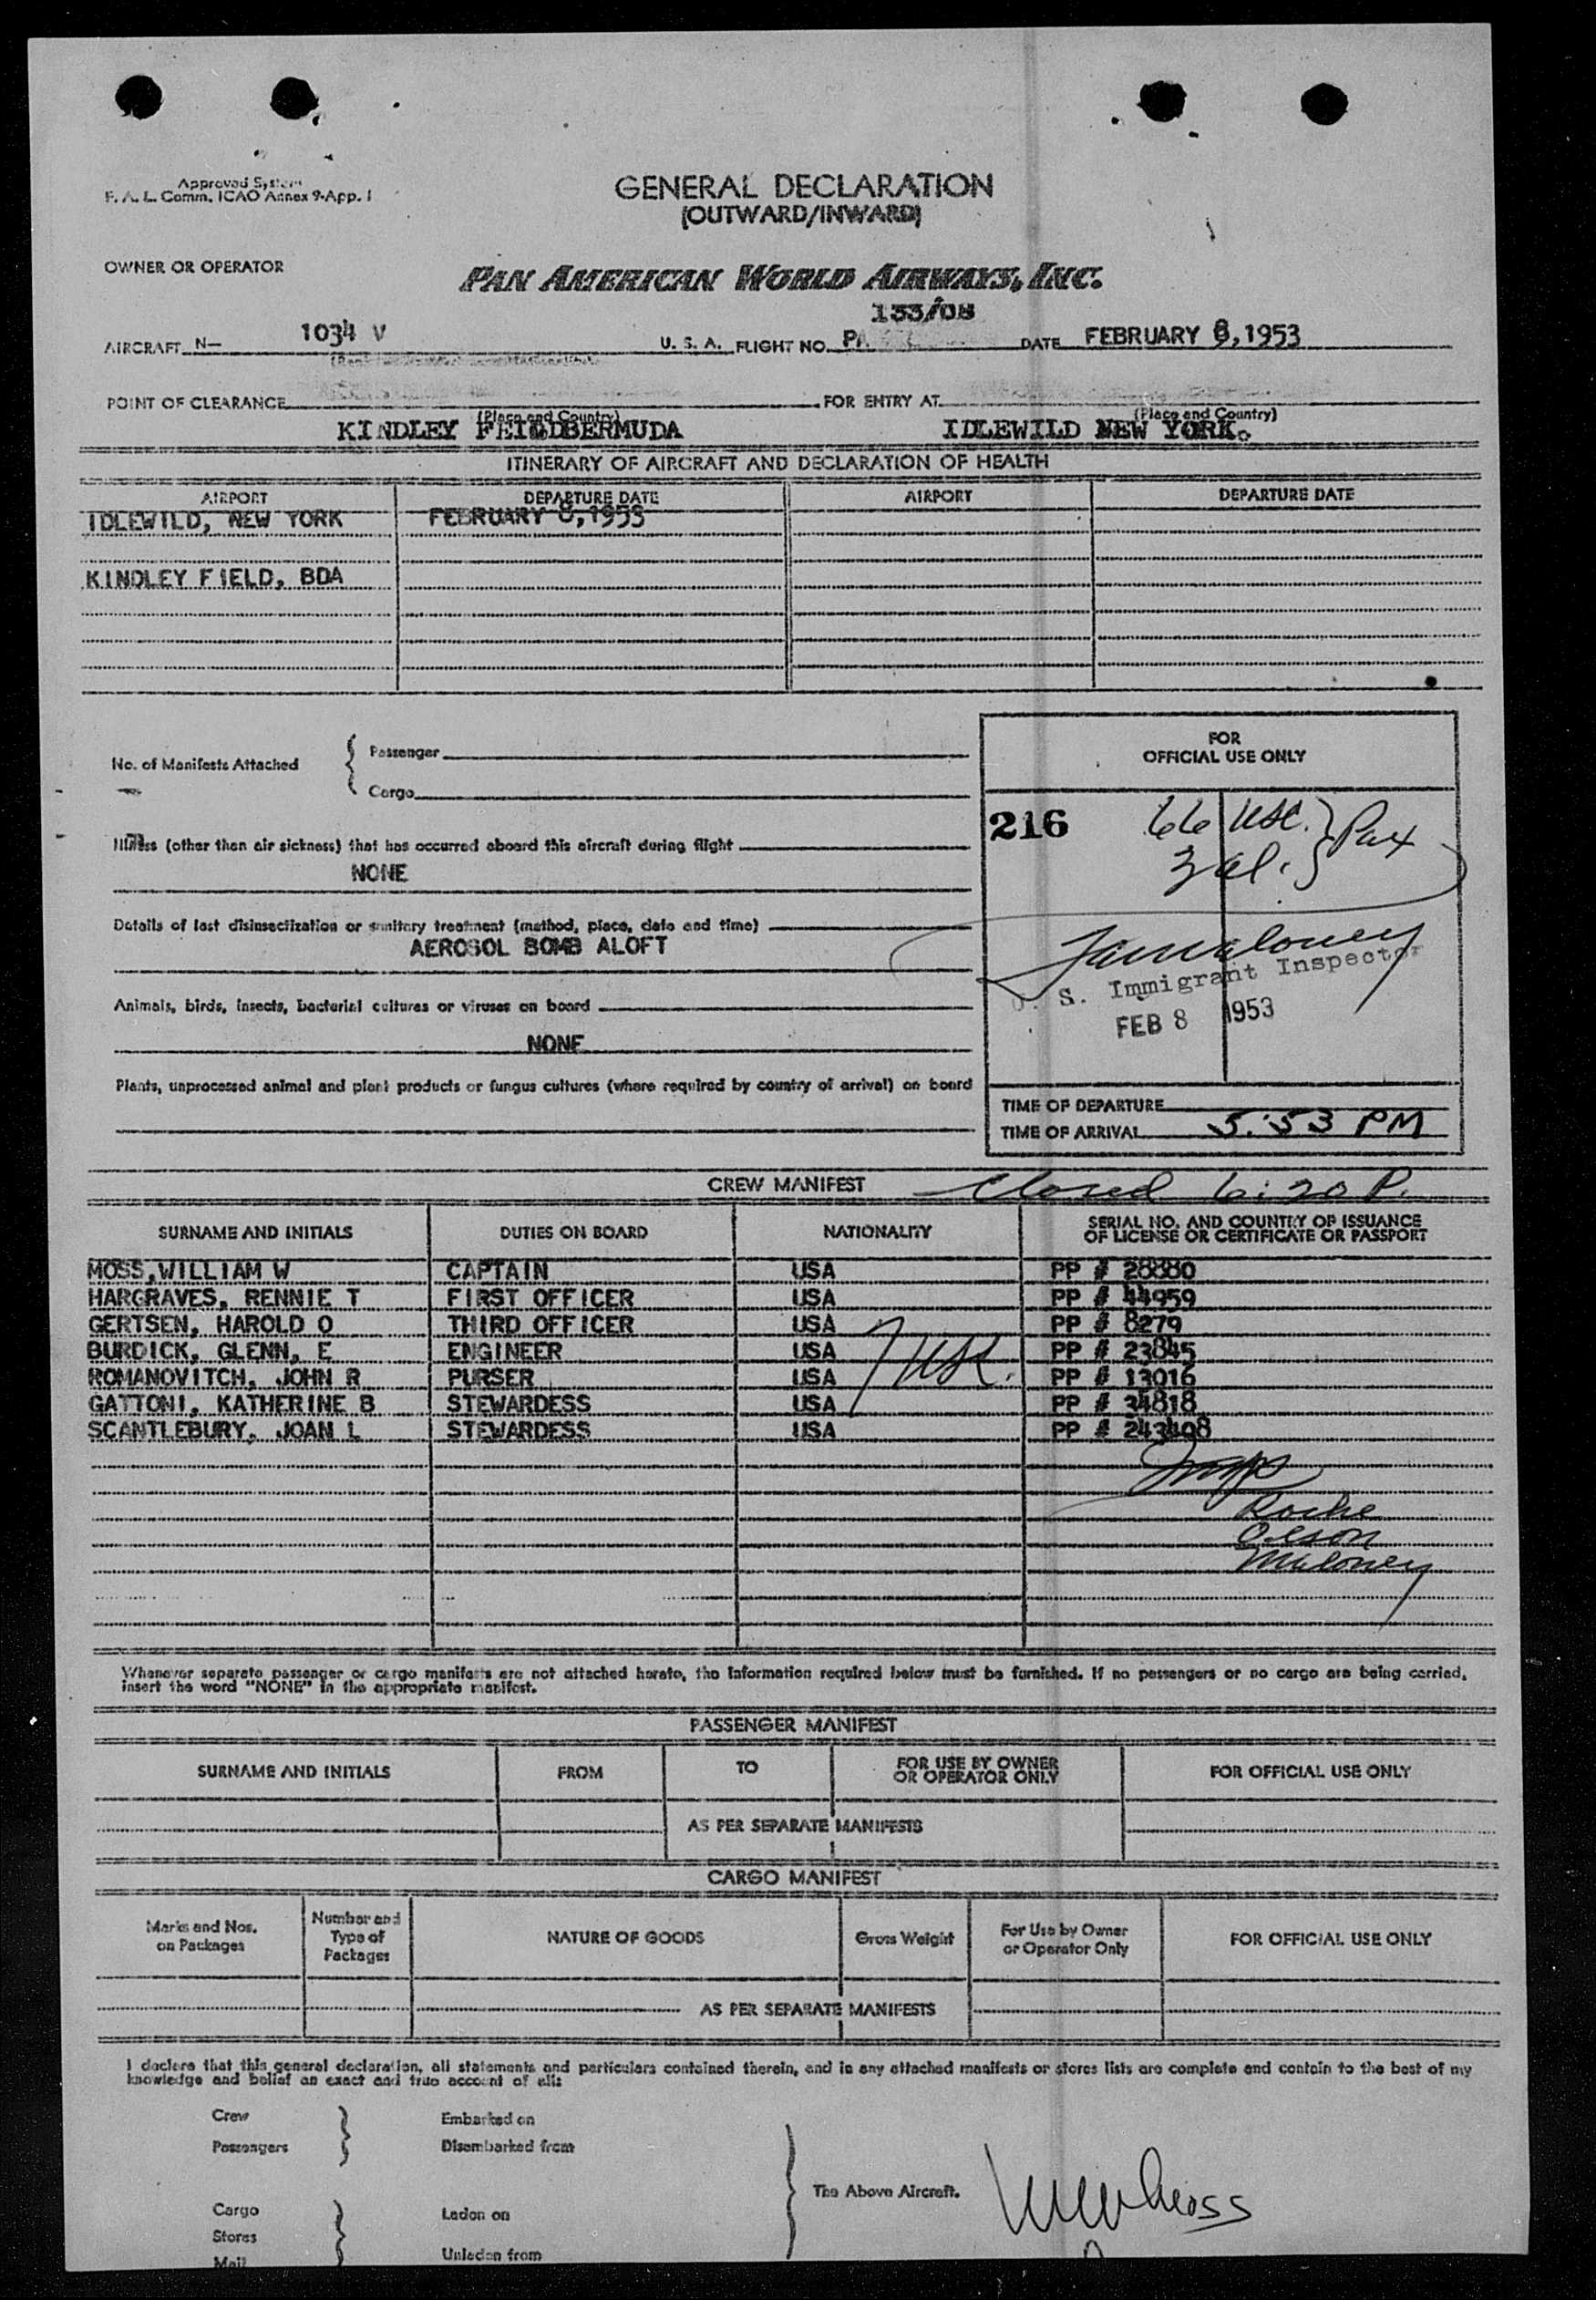 Approved System
F. A. L. Comm. ICAO Annex 9-App. 1
GENERAL DECLARATION
(OUTWARD/INWARD)
OWNER OR OPERATOR
PAN AMERICAN WORLD AIRWAYS, INC.
133/08
AIRCRAFT N— 1034 V U. S. A. FLIGHT NO. PA DATE FEBRUARY 8,1953
POINT OF CLEARANCE FOR ENTRY AT
(Place and Country) (Place and Country)
KINDLEY FEILDBERMUDA IDLEWILD NEW YORK.
ITINERARY OF AIRCRAFT AND DECLARATION OF HEALTH
AIRPORT DEPARTURE DATE AIRPORT DEPARTURE DATE
IDLEWILD, NEW YORK FEBRUARY 8,1953
KINDLEY FIELD, BDA
No. of Manifests Attached { Passenger
Cargo
FOR
OFFICIAL USE ONLY
216 66 USC. } Pax
3 al.
Illness (other than air sickness) that has occurred aboard this aircraft during flight
NONE
Details of last disinsectization or sanitary treatment (method, place, date and time)
AEROSOL BOMB ALOFT
Maloney
U. S. Immigrant Inspector
FEB 8 1953
Animals, birds, insects, bacterial cultures or viruses on board
NONE
Plants, unprocessed animal and plant products or fungus cultures (where required by country of arrival) on board
TIME OF DEPARTURE
TIME OF ARRIVAL 5:53 PM
CREW MANIFEST Closed 6:20 P.
SURNAME AND INITIALS DUTIES ON BOARD NATIONALITY SERIAL NO. AND COUNTRY OF ISSUANCE
OF LICENSE OR CERTIFICATE OR PASSPORT
MOSS,WILLIAM W CAPTAIN USA PP # 28880
HARGRAVES, RENNIE T FIRST OFFICER USA PP # 44959
GERTSEN, HAROLD O THIRD OFFICER USA PP # 8279
BURDICK, GLENN, E ENGINEER USA PP # 23845
7 USC.
ROMANOVITCH, JOHN R PURSER USA PP # 13016
GATTONI, KATHERINE B STEWARDESS USA PP # 34818
SCANTLEBURY, JOAN L STEWARDESS USA PP # 243408
Insps
Roche
Olson
Maloney
Whenever separate passenger or cargo manifests are not attached hereto, the information required below must be furnished. If no passengers or no cargo are being carried,
insert the word "NONE" in the appropriate manifest.
PASSENGER MANIFEST
SURNAME AND INITIALS FROM TO FOR USE BY OWNER
OR OPERATOR ONLY FOR OFFICIAL USE ONLY
AS PER SEPARATE MANIFESTS
CARGO MANIFEST
Marks and Nos.
on Packages
Number and
Type of
Packages
NATURE OF GOODS Gross Weight
For Use by Owner
or Operator Only
FOR OFFICIAL USE ONLY
AS PER SEPARATE MANIFESTS
I declare that this general declaration, all statements and particulars contained therein, and in any attached manifests or stores lists are complete and contain to the best of my
knowledge and belief an exact and true account of all:
Crew Embarked on
Passengers Disembarked from
The Above Aircraft. WWMoss
Cargo Laden on
Stores
Mail Unladen from